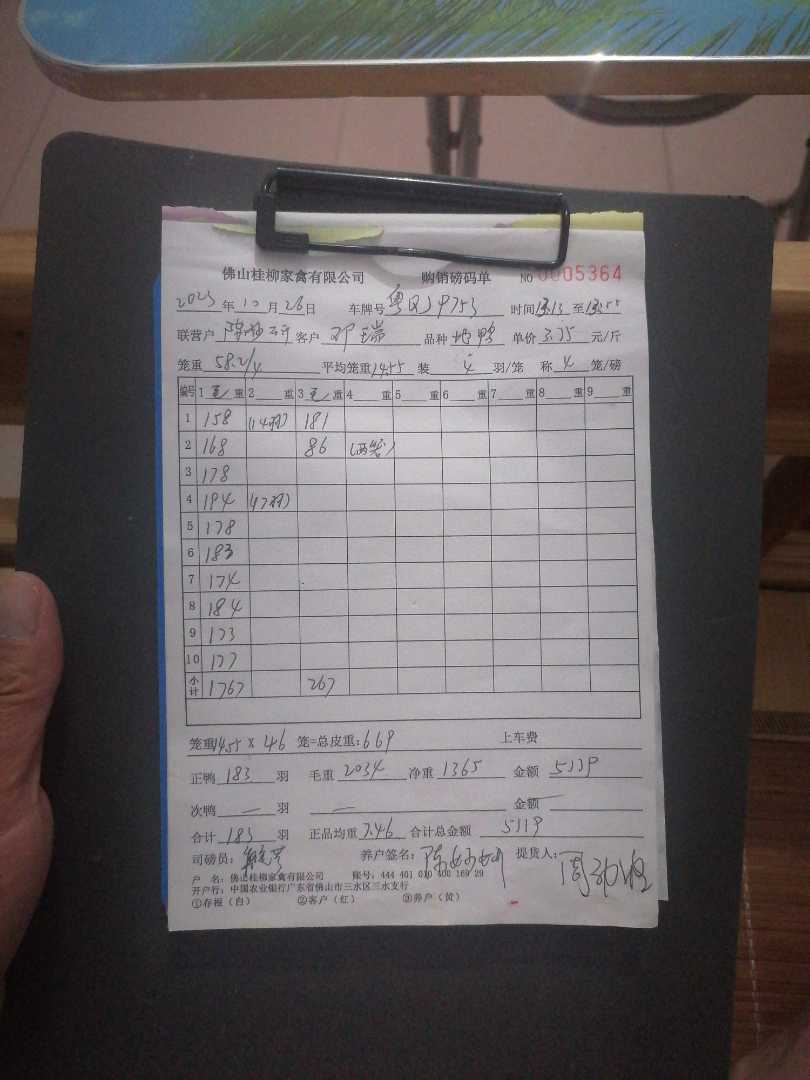 佛山桂柳家禽有限公司 购销磅码单 NO 0005364
2023 年 10 月 26 日 车牌号 粤 9753 时间 至
联营户 客户 邓瑞 品种 地鸭 单价 3.75 元/斤
笼重 58.2/4 平均笼重 14.55 装 4 羽/笼 称 4 笼/磅
编号 1 毛 重 2 重 3 毛 重 4 重 5 重 6 重 7 重 8 重 9 重
1 158 (14羽) 181
2 168 86 (两笼)
3 178
4 194 (17羽)
5 178
6 183
7 174
8 184
9 173
10 177
小计 1767 267
笼重 14.55 × 46 笼=总皮重: 669 上车费
正鸭 183 羽 毛重 2034 净重 1365 金额 5119
次鸭 — 羽 — 金额 —
合计 183 羽 正品均重 7.46 合计总金额 5119
司磅员: 养户签名: 提货人:
户 名: 佛山桂柳家禽有限公司 账号: 444 401 010 400 169 29
开户行: 中国农业银行广东省佛山市三水区三水支行
①存根（白） ②客户（红） ③养户（黄）